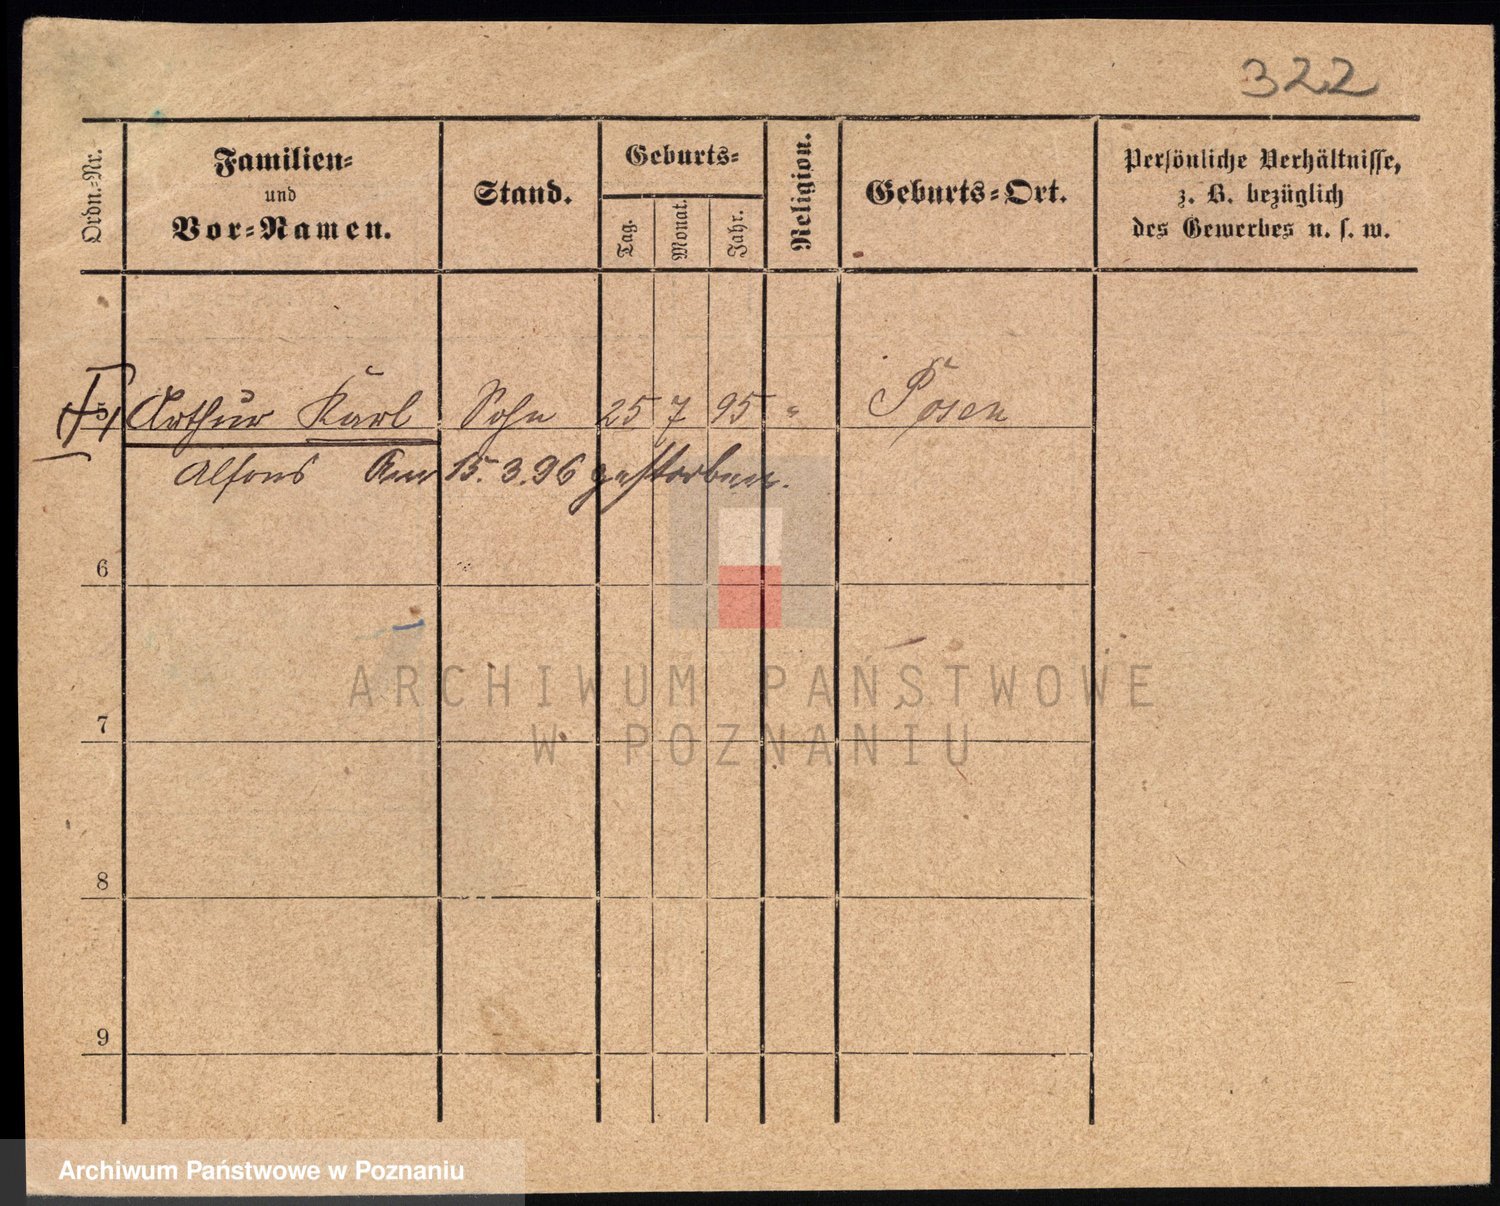 322
Ordn.-Nr.
Familien-
und
Vor-Namen.
Stand.
Geburts-
Tag.
Monat.
Jahr.
Religion.
Geburts-Ort.
Persönliche Verhältnisse,
z. B. bezüglich
des Gewerbes u. s. w.
5 Arthur Karl Sohn 25 7 95 " Posen
Alfons Am 15.3.96 gestorben.
6
7
8
9
ARCHIWUM PAŃSTWOWE
W POZNANIU
Archiwum Państwowe w Poznaniu